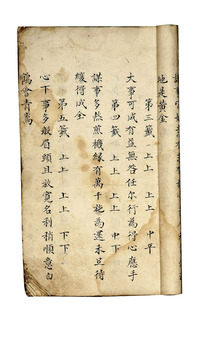 地是黃金
第三籤 上上 上上 中平
大事可成有益無咎任尔行為得心應手
第四籤 上上 上上 中下
謀事多熬煎機緣有萬千施為還未且待
緩得成全
第五籤 上上 上上 下下
心下事多般眉頭且放寬名利稍順意白
鶴會青鸞